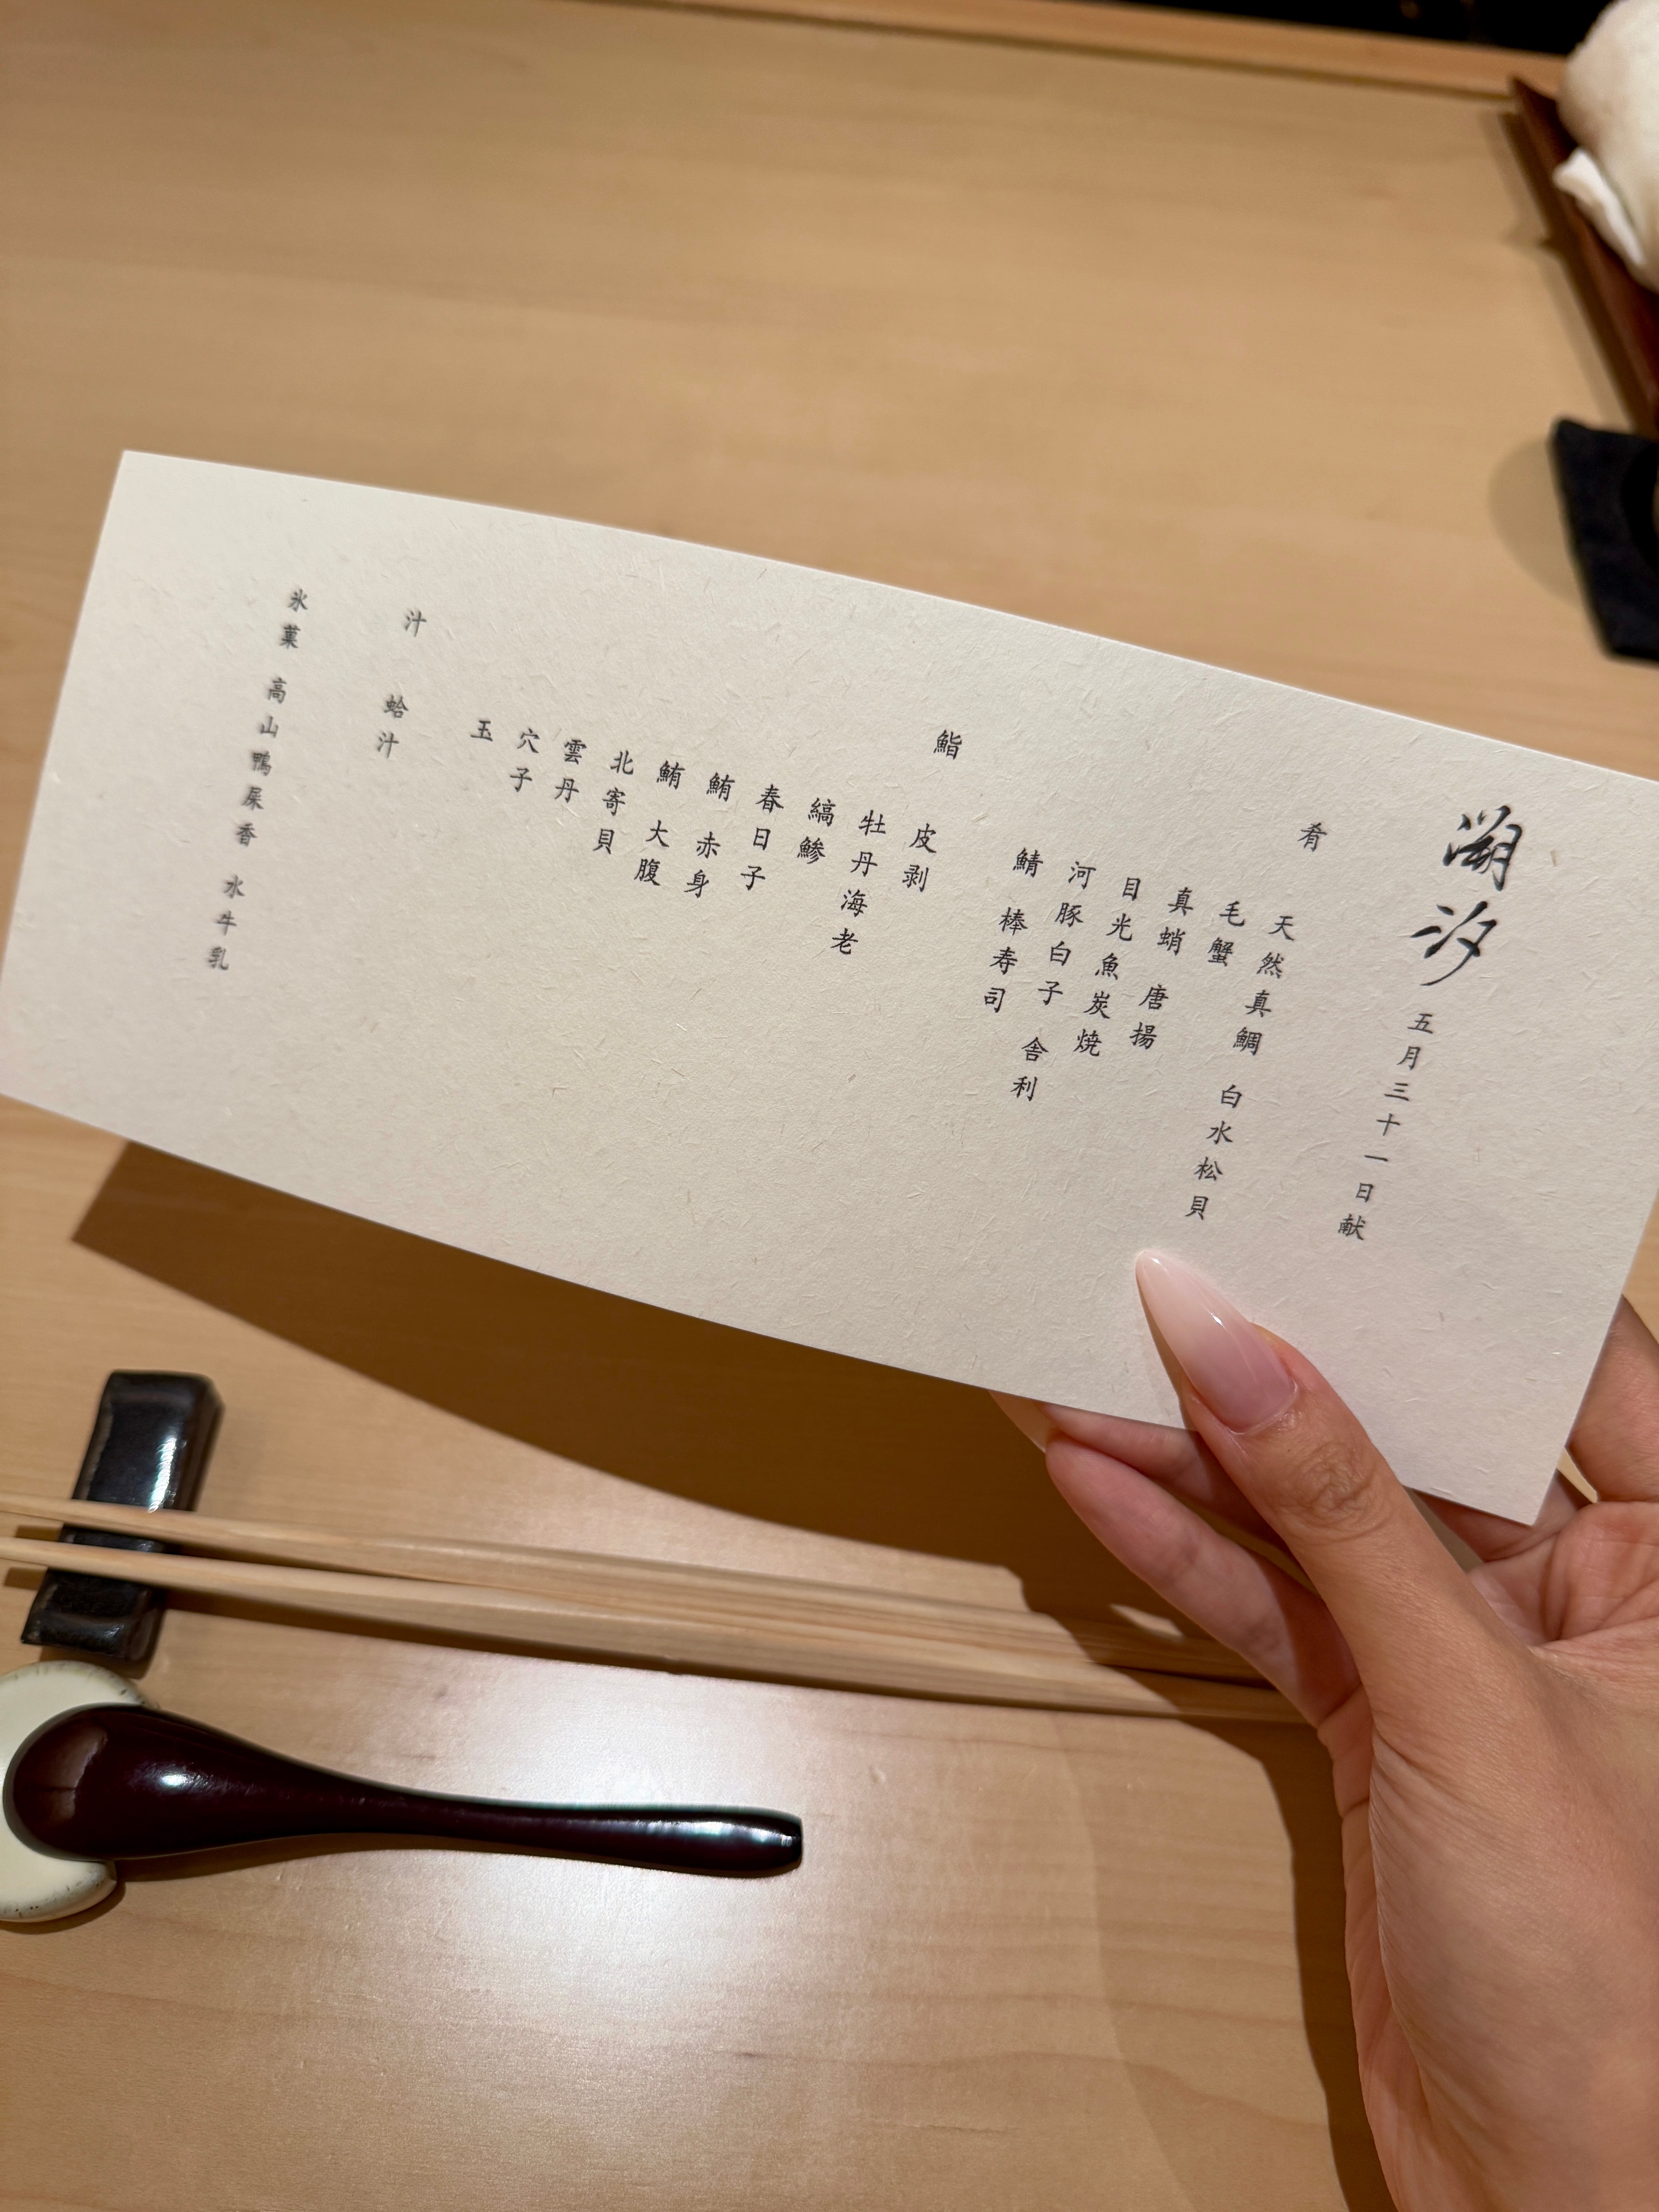 溯汐 五月三十一日献
肴
天然真鯛 白水松貝
毛蟹
真蛸 唐揚
目光魚炭焼
河豚白子 舎利
鯖 棒寿司
鮨
皮剥
牡丹海老
縞鯵
春日子
鮪 赤身
鮪 大腹
北寄貝
雲丹
穴子
玉
汁 蛤汁
氷菓 高山鴨屎香 水牛乳